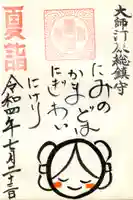 大師河原総鎮守
夏詣
たみの
かまどは
にぎわい
にけり
令和四年七月二十三日